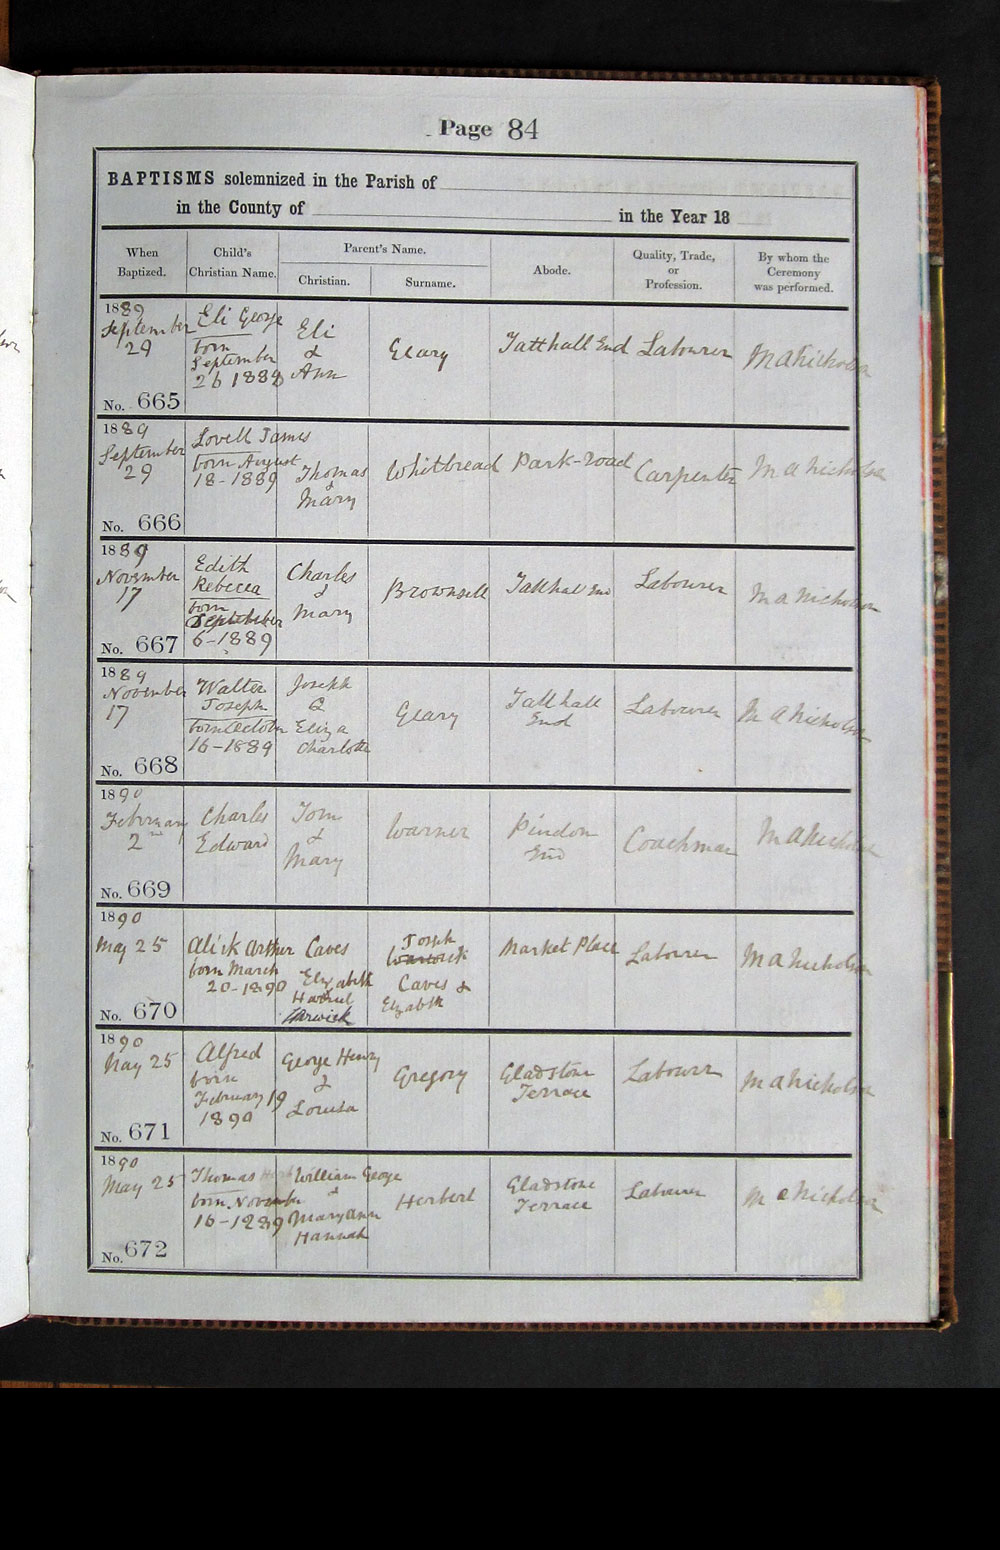 Page 84
BAPTISMS solemnized in the Parish of
in the County of in the Year 18
When Baptized.
Child's Christian Name.
Parent's Name.
Christian.
Surname.
Abode.
Quality, Trade, or Profession.
By whom the Ceremony was performed.
1889
September
29
No. 665
Eli George
born
September
26 1889
Eli
&
Ann
Geary
Tatthall End
Labourer
M A Nicholson
1889
September
29
No. 666
Lovell James
born August
18-1889
Thomas
&
Mary
Whitbread
Park-road
Carpenter
M A Nicholson
1889
November
17
No. 667
Edith
Rebecca
born
September
6-1889
Charles
&
Mary
Brownsell
Tathal End
Labourer
M A Nicholson
1889
November
17
No. 668
Walter
Joseph
born October
16-1889
Joseph
&
Eliza
Charlotte
Geary
Tathall
End
Labourer
M A Nicholson
1890
February
2nd
No. 669
Charles
Edward
Tom
&
Mary
Warner
Pindon
End
Coachman
M A Nicholson
1890
May 25
No. 670
Alick Arthur
born March
20-1890
Caves
Elizabeth
Harriet
Warwick
Joseph
Caves &
Elizabth
Market Place
Labourer
M A Nicholson
1890
May 25
No. 671
Alfred
born
February 19
1890
George Henry
&
Louisa
Gregory
Gladstone
Terrace
Labourer
M A Nicholson
1890
May 25
No. 672
Thomas
born November
16-1889
William George
&
Mary Ann
Hannah
Herbert
Gladstone
Terrace
Labourer
M A Nicholson